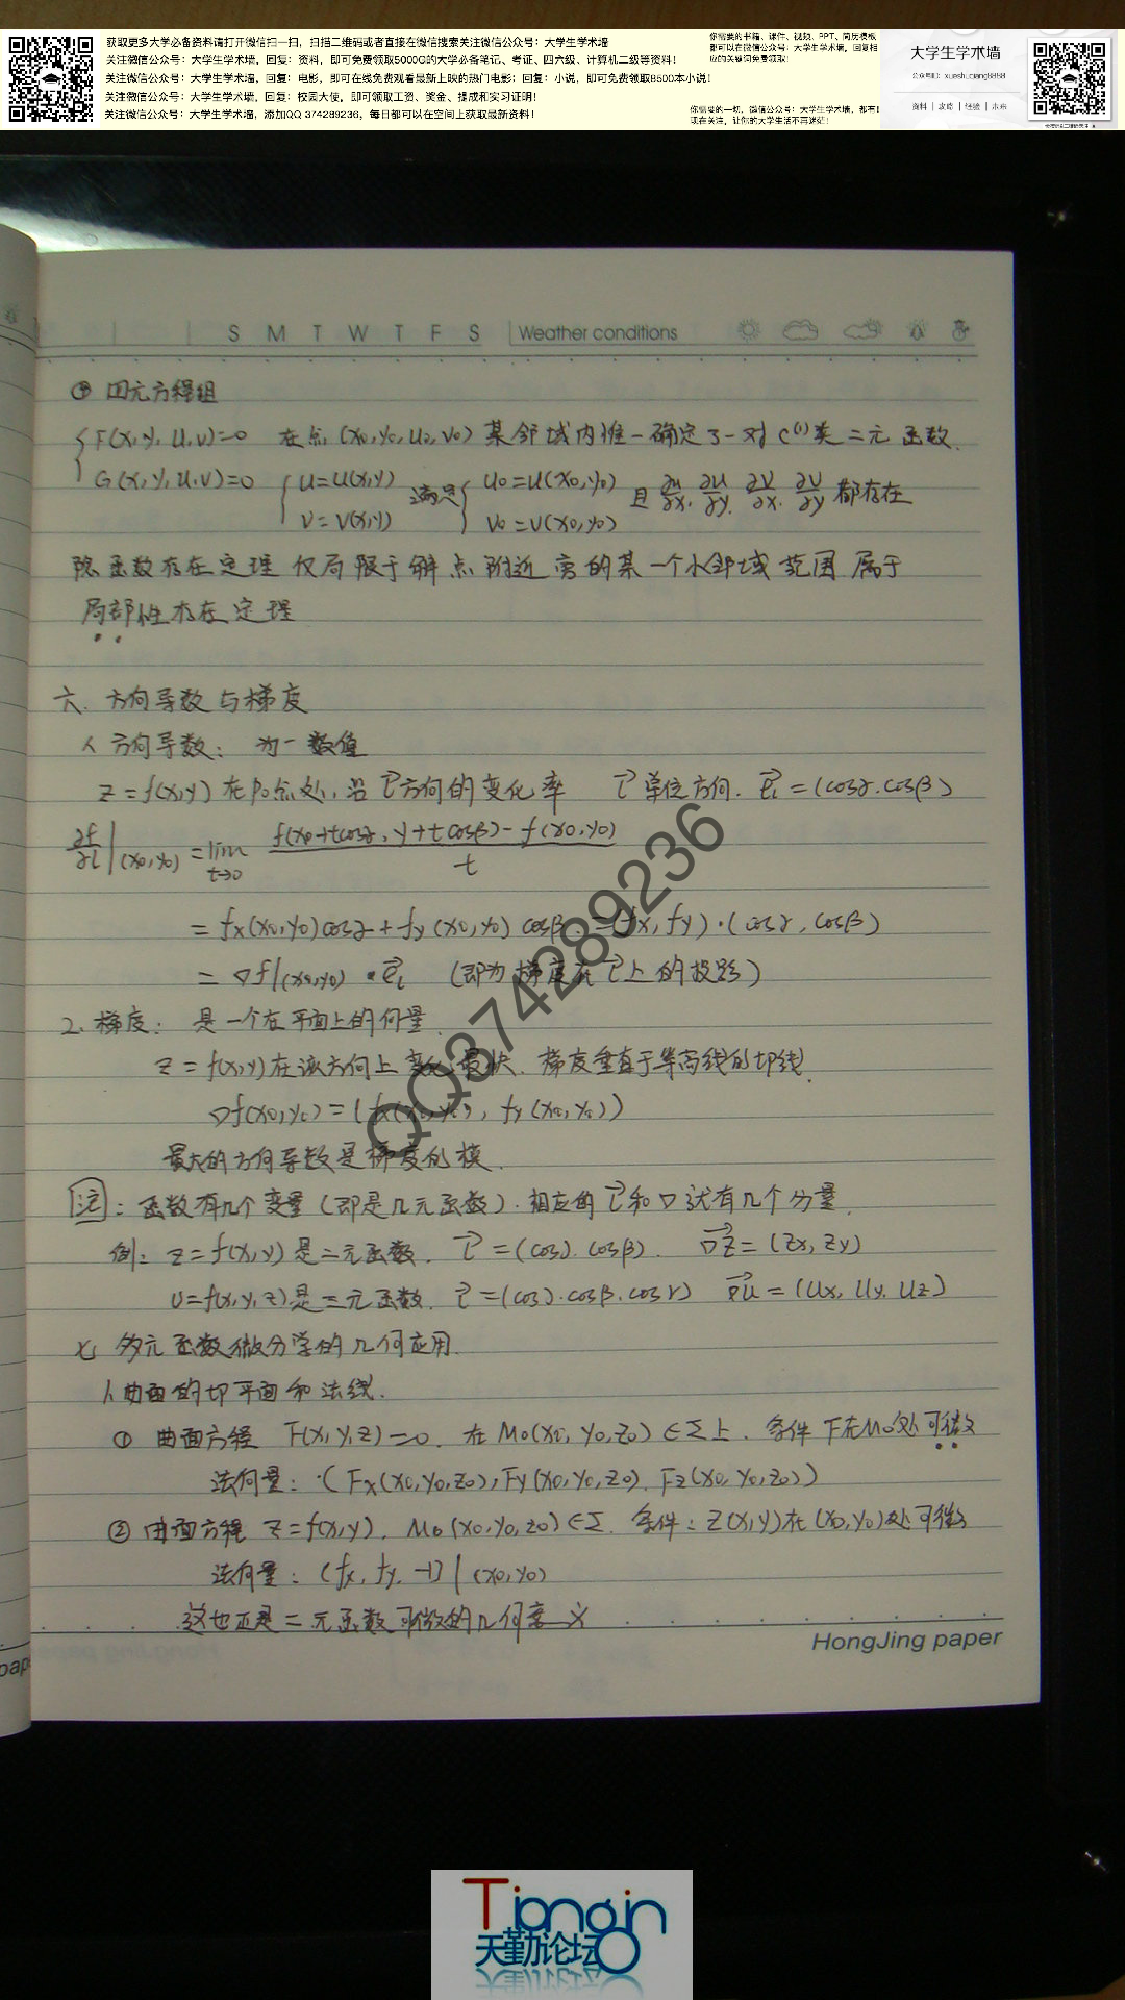 获取更多大学必备资料请打开微信扫一扫，扫描二维码或者直接在微信搜索关注微信公众号：大学生学术墙
关注微信公众号：大学生学术墙，回复：资料，即可免费领取5000G的大学必备笔记、考证、四六级、计算机二级等资料！
关注微信公众号：大学生学术墙，回复：电影，即可在线免费观看最新上映的热门电影；回复：小说，即可免费领取8500本小说！
关注微信公众号：大学生学术墙，回复：校园大使，即可领取工资、奖金、提成和实习证明！
关注微信公众号：大学生学术墙，添加QQ 374289236，每日都可以在空间上获取最新资料！
你需要的书籍、课件、视频、PPT、简历模板
都可以在微信公众号：大学生学术墙，回复相
应的关键词免费领取！
你需要的一切，微信公众号：大学生学术墙，都有！
现在关注，让你的大学生活不再迷茫！
大学生学术墙
公众号ID：xueshuqiang8888
资料 | 攻略 | 经验 | 未来
S M T W T F S Weather conditions
④ 四元方程组
{ F(x,y,u,v)=0 在点 (x0,y0,u0,v0) 某邻域内唯一确定了一对 C⁽¹⁾类二元函数.
G(x,y,u,v)=0 { u=u(x,y) v=v(x,y) 满足 { u0=u(x0,y0) v0=v(x0,y0) 且 ∂u/∂x, ∂u/∂y, ∂v/∂x, ∂v/∂y 都存在
隐函数存在定理 仅局限于解点附近旁的某一个小邻域范围 属于
局部性存在定理
六. 方向导数与梯度
1. 方向导数： 为一数值
z=f(x,y) 在P0点处, 沿 l⃗方向的变化率 l⃗ 单位方向. e⃗l=(cosα.cosβ)
∂f/∂l|(x0,y0) = lim t→0 f(x0+tcosα, y+tcosβ)-f(x0,y0) / t
= fx(x0,y0)cosα+fy(x0,y0) cosβ =(fx, fy)·(cosα, cosβ)
= ▽f|(x0,y0) · e⃗l (即为梯度在 l⃗上的投影)
2. 梯度： 是一个在平面上的向量
z=f(x,y)在该方向上变化最快. 梯度垂直于等高线的切线.
▽f(x0,y0)=(fx(x0,y0), fy(x0,y0))
最大的方向导数是梯度的模.
注：函数有几个变量(即是几元函数). 相应的 l⃗和▽就有几个分量.
例：z=f(x,y)是二元函数. l⃗=(cosα.cosβ). ▽z=(zx, zy)
u=f(x,y,z)是三元函数. l⃗=(cosα.cosβ.cosγ) ▽u=(ux, uy, uz)
七 多元函数微分学的几何应用.
1. 曲面的切平面和法线.
① 曲面方程 F(x,y,z)=0. 在M0(x0,y0,z0)∈Σ上. 条件 F在M0处可微
法向量：(Fx(x0,y0,z0), Fy(x0,y0,z0), Fz(x0,y0,z0))
② 曲面方程 z=f(x,y), M0(x0,y0,z0)∈Σ. 条件：z(x,y)在(x0,y0)处可微
法向量：(fx, fy, -1)|(x0,y0)
这也正是二元函数可微的几何意义
HongJing paper
QQ374289236
Tianqin
天勤论坛